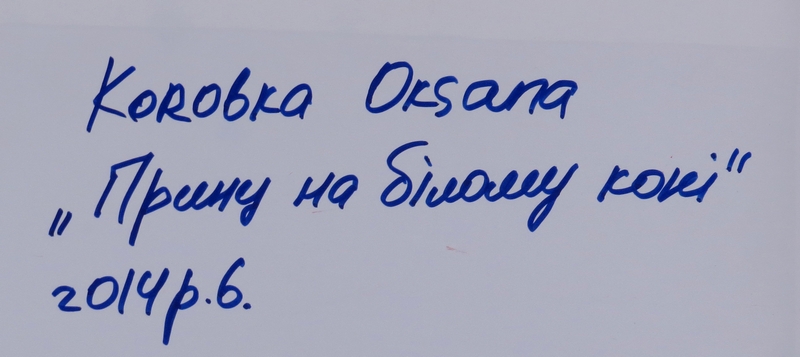 Korobka Oksana
„Принц на білому коні"
2014р.б.